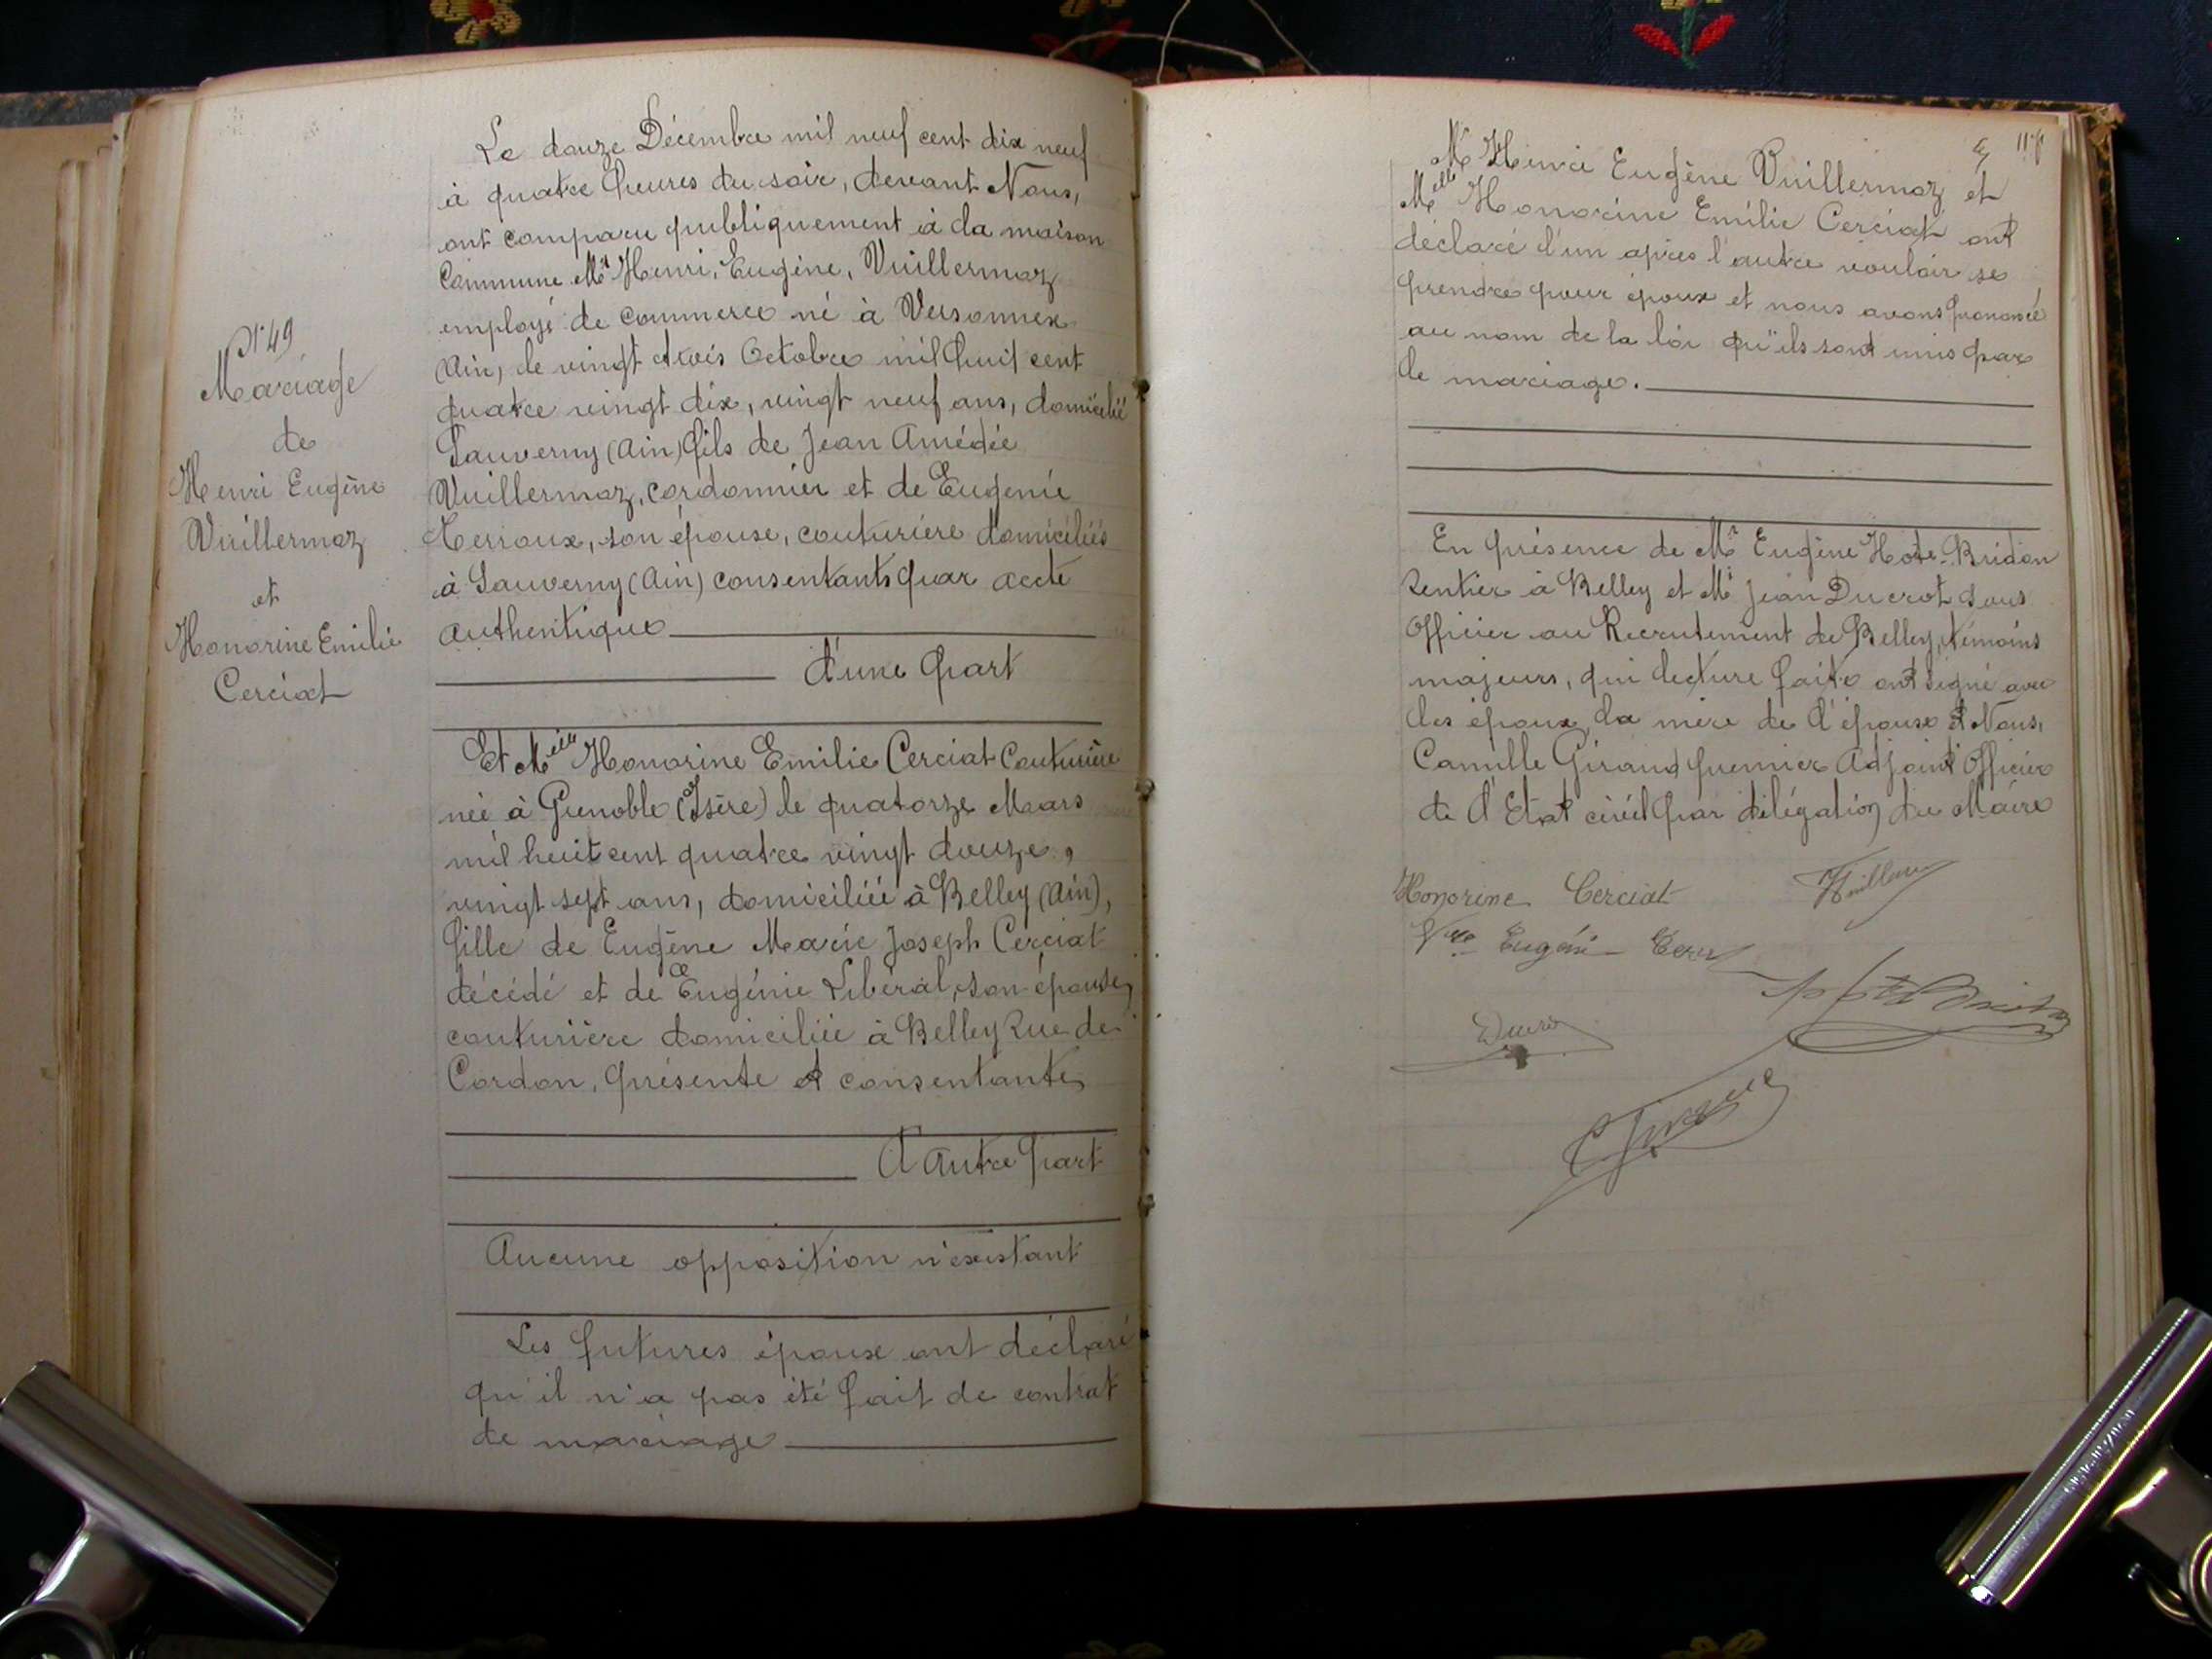 N° 49
Mariage
de
Henri Eugène
Vuillermoz
et
Honorine Emilie
Cerciat
Le douze Décembre mil neuf cent dix neuf
à quatre heures du soir, devant Nous,
ont comparu publiquement à la maison
Commune Mr Henri, Eugène, Vuillermoz
employé de commerce né à Versonnex
(Ain) le vingt trois Octobre mil huit cent
quatre vingt dix, vingt neuf ans, domicilié
Sauverny (Ain) fils de Jean Amédée
Vuillermoz, cordonnier et de Eugenie
Terroux, son épouse, couturière domiciliés
à Sauverny (Ain) consentants par acte
authentique
d'une part
Et Melle Honorine Emilie Cerciat Couturière
née à Grenoble (Isère) le quatorze Mars
mil huit cent quatre vingt douze,
vingt sept ans, domiciliée à Belley (Ain),
fille de Eugène Marie Joseph Cerciat
décédé et de Eugénie Libéral, son épouse,
couturière domiciliée à Belley Rue de
Cordon, présente et consentante
d'autre part
Aucune opposition n'existant
Les futures époux ont déclaré
qu'il n'a pas été fait de contrat
de mariage
Mr Henri Eugène Vuillermoz et
Melle Honorine Emilie Cerciat ont
déclaré l'un après l'autre vouloir se
prendre pour époux et nous avons prononcé
au nom de la loi qu'ils sont unis par
le mariage.
En présence de Mr Eugène Hote-Bridon
Rentier à Belley et Mr Jean Ducrot sous
Officier au Recrutement de Belley, témoins
majeurs, qui lecture faite ont signé avec
les époux, la mère de l'épouse et Nous,
Camille Giraud premier Adjoint Officier
de l'Etat civil par délégation du Maire
Honorine Cerciat
Vve Eugénie